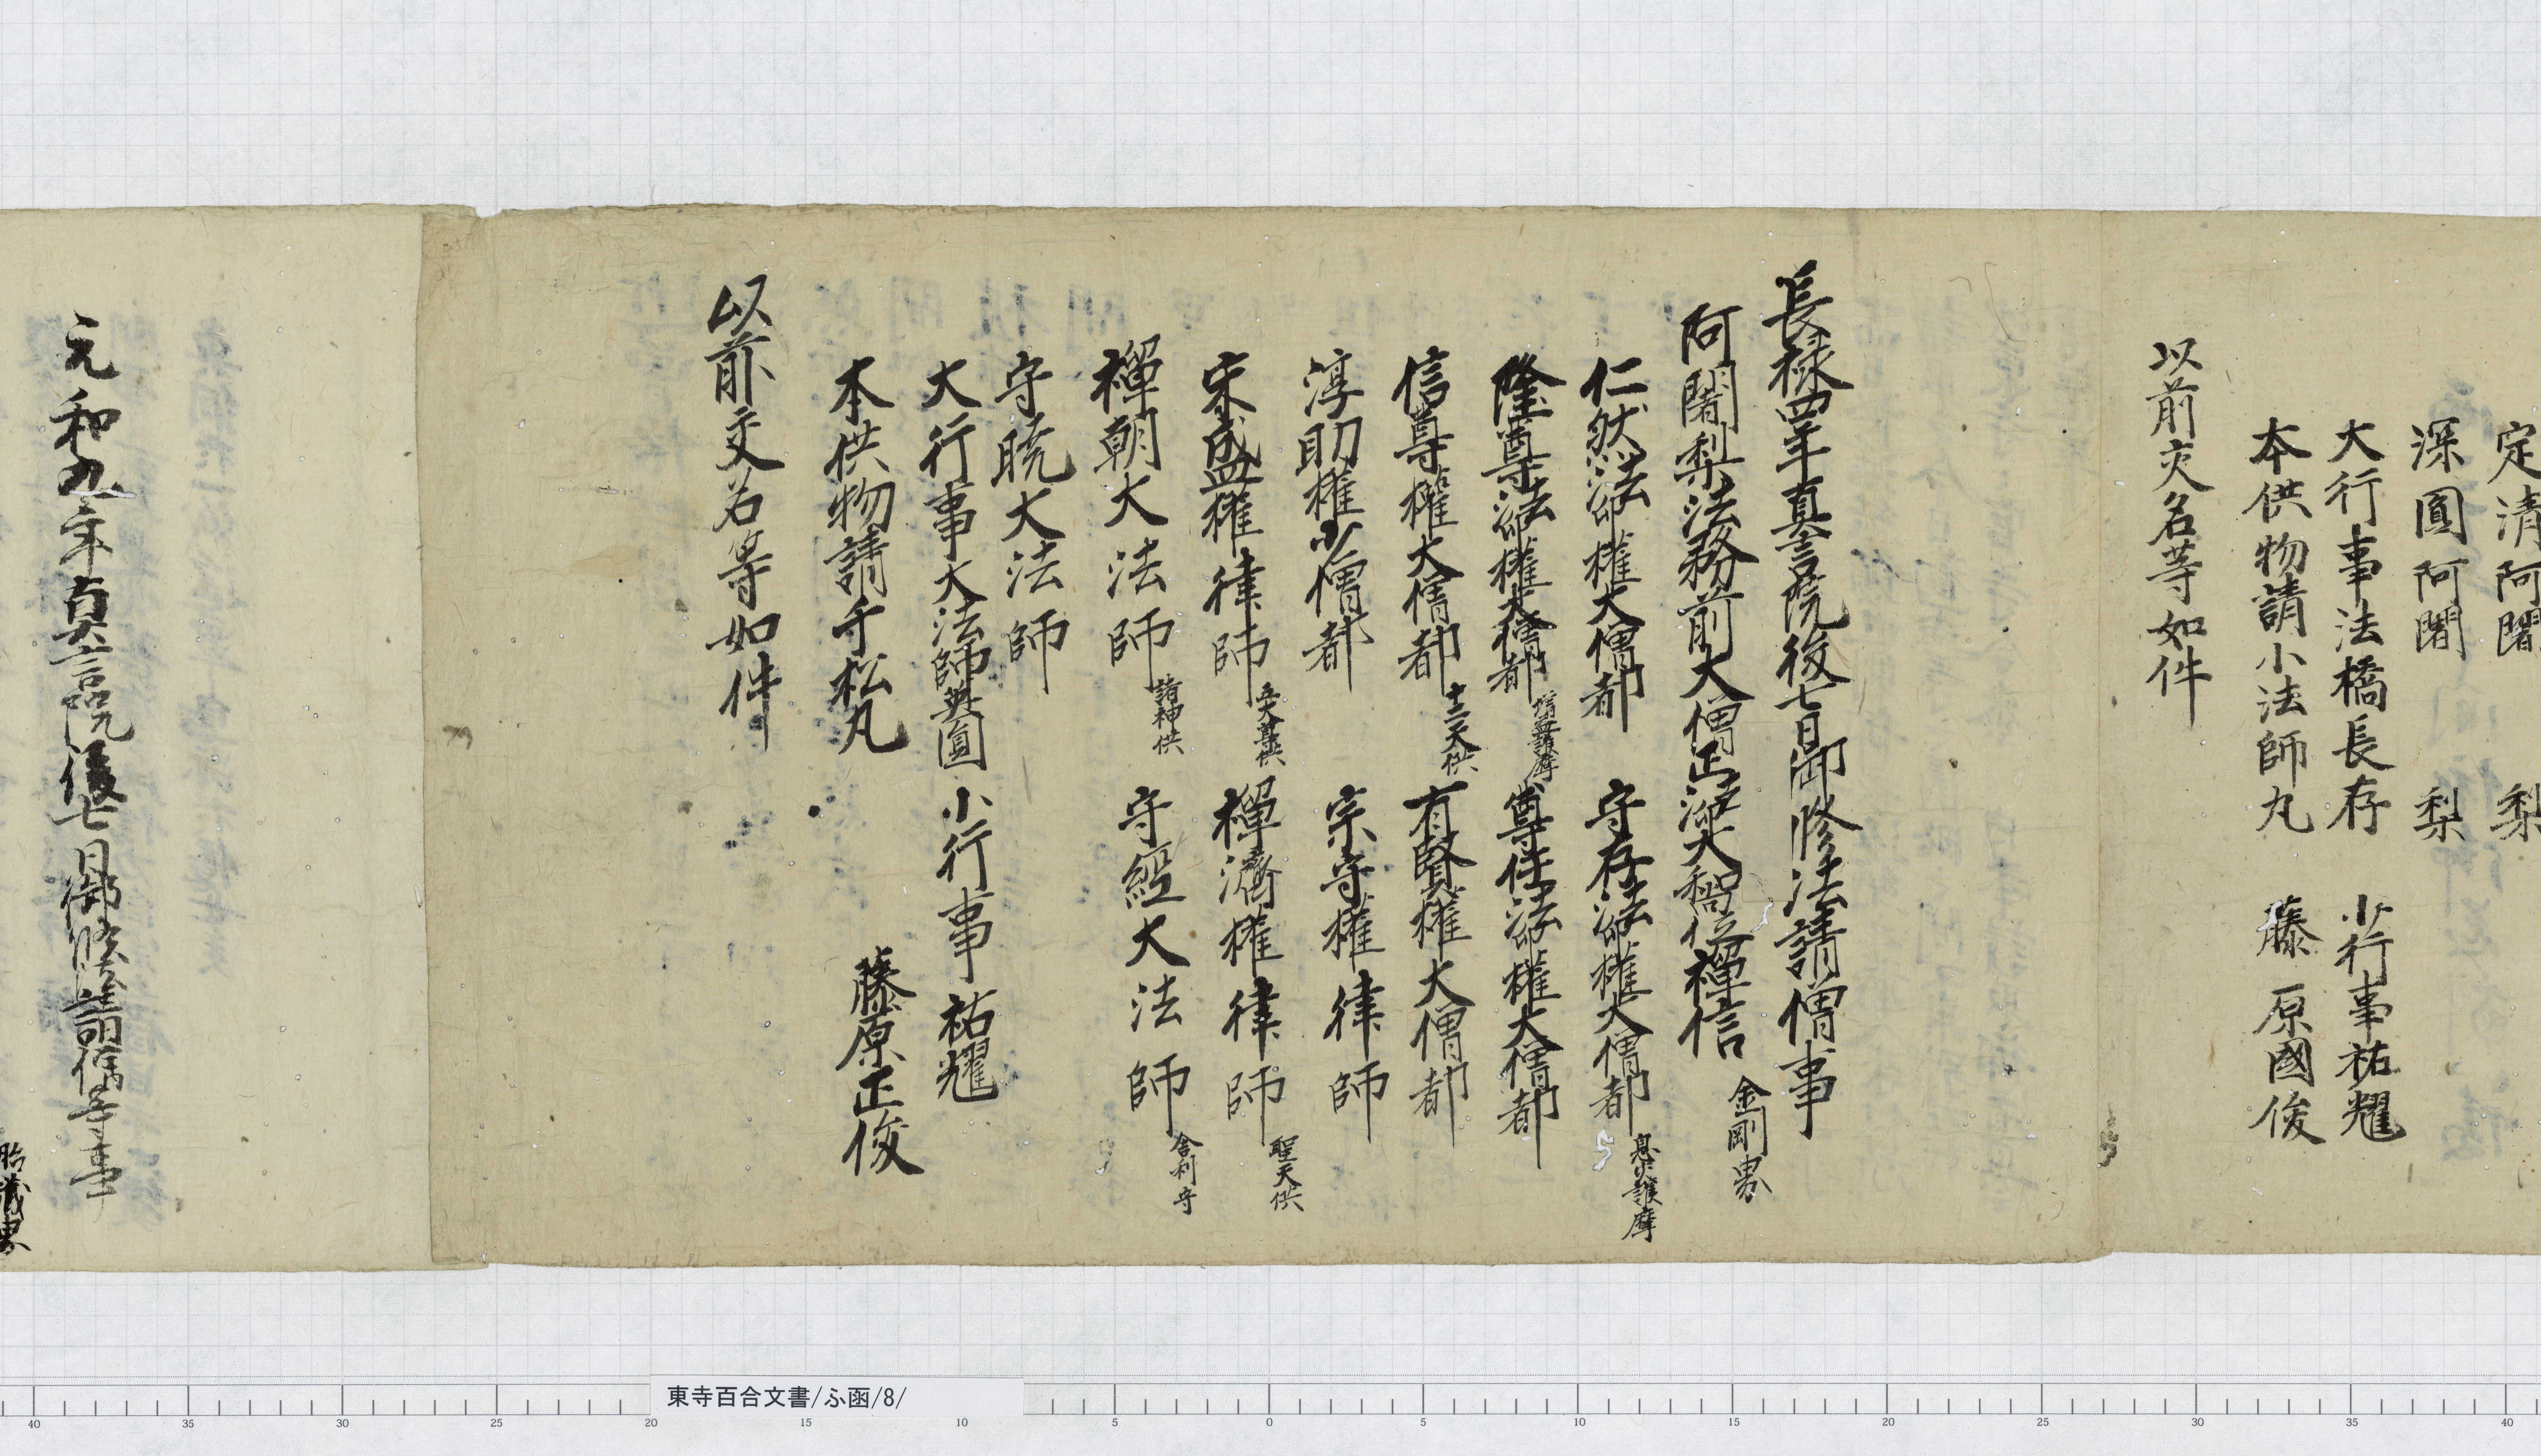 定清阿闍梨
深圓阿闍梨
大行事法橋長存 小行事祐耀
本供物請小法師丸 藤原國俊
以前交名等如件
長禄四年真言院後七日御修法請僧事
阿闍梨法務前大僧正法印大和尚位禅信 金剛界
仁然法印権大僧都 守存法印権大僧都 息災護摩
隆尊法印権大僧都 増益護摩 尊任法印権大僧都
信尊権大僧都 十二天供 有賢権大僧都
淳助権少僧都 宗守権律師
宋盛権律師 五大尊供 禅済権律師 聖天供
禅朝大法師 諸神供 守経大法師 舎利守
守暁大法師
大行事大法師 圓 小行事祐耀
本供物請千松丸 藤原正俊
以前交名等如件
元和九年真言院後七日御修法請僧等事
胎蔵界
東寺百合文書/ふ函/8/
40 35 30 25 20 15 10 5 0 5 10 15 20 25 30 35 40